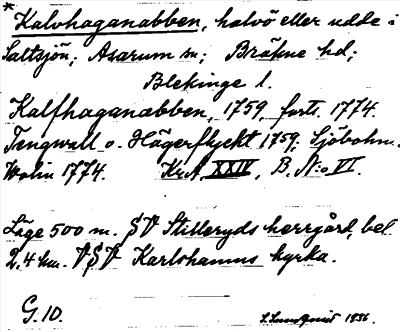 * Kalvhaganabben, halvö eller udde i
Saltsjön; Asarum sn; Bräkne hd;
Blekinge l.
Kalfhaganabben, 1759, forts. 1774.
Tengwall o. Hägerflyckt 1759, Sjöbohm.
Wolin 1774. Kr.A. XXIV, B. N:o VI.
Läge 500 m. SV Stilleryds herrgård, bel.
2,4 km. VSV Karlshamns kyrka.
G. 10. S. Lundquist 1936.